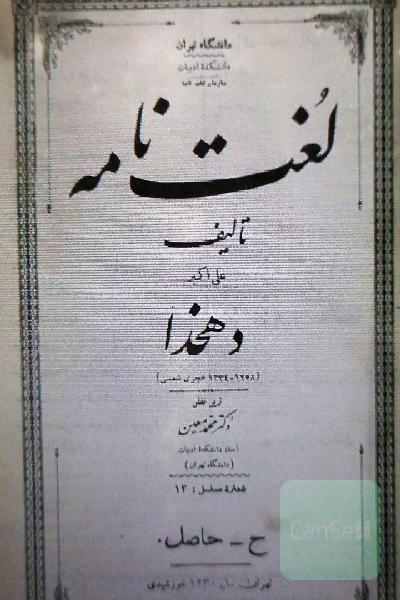 دانشگاه تهران
دانشکدهٔ ادبیات
سازمان لغت نامه
لُغت نامه
تألیف
علی اکبر
دهخدا
(۱۲۵۸-۱۳۳۴ هجری شمسی)
زیر نظر
دکتر محمد معین
استاد دانشکدهٔ ادبیات
(دانشگاه تهران)
شمارهٔ مسلسل : ۱۳
ح - حاصل.
تهران ۱۳۳۰ خورشیدی
CanSell